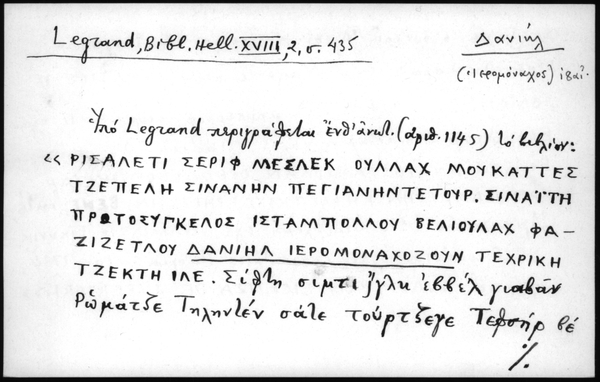 Legrand, Bibl. Hell. XVIII, 2, σ. 435
Δανιήλ
(Ἱερομόναχος)
Ὑπό Legrand περιγράφεται ἔνθ' ἀνωτ. (ἀριθ. 1145) τό βιβλίον:
« ΡΙΣΑΛΕΤΙ ΣΕΡΙΦ ΜΕΣΛΕΚ ΟΥΛΛΑΧ ΜΟΥΚΑΤΤΕΣ
ΤΖΕΠΕΛΗ ΣΙΝΑΝΗΝ ΠΕΓΙΑΝΗΝΤΕΤΟΥΡ. ΣΙΝΑΪΤΗ
ΠΡΩΤΟΣΥΓΚΕΛΟΣ ΙΣΤΑΜΠΟΛΛΟΥ ΒΕΛΙΟΥΛΑΧ ΦΑ-
ΖΙΖΕΤΛΟΥ ΔΑΝΙΗΛ ΙΕΡΟΜΟΝΑΧΟΖΟΥΝ ΤΕΧΡΙΚΗ
ΤΖΕΚΤΗ ΙΛΕ. Σίφτη σιμτι ἴγλκ ἐββέλ γιαβάν
Ρωμάτζε Τηλητέν σάτε τούρτζεγε Τεφσήρ βέ
./.